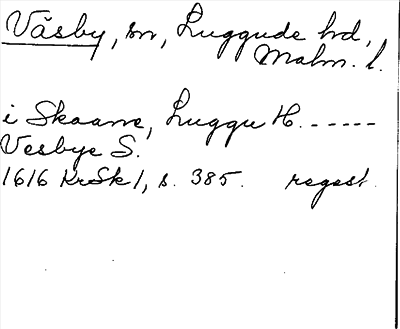 Väsby, sn, Luggude hd,
Malm. l.
i Skaane, Luggu H. -----
Vesbye S.
1616 KrSk 1, s. 385. regest.